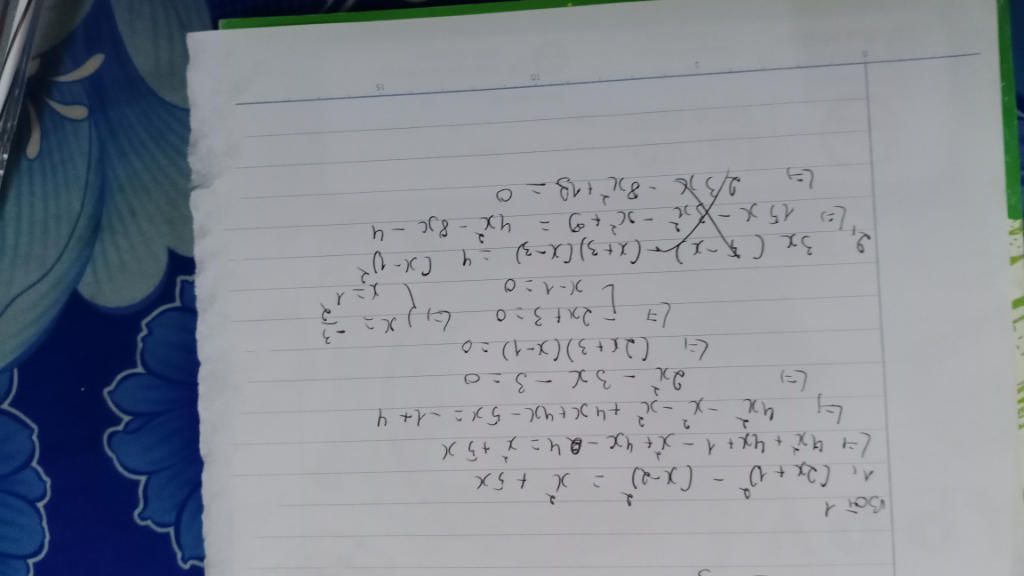 Bài 1
1, (2x+1)² - (x-2)² = x² + 5x
<=> 4x² + 4x + 1 - x² + 4x - 4 = x² + 5x
<=> 4x² - x² - x² + 4x + 4x - 5x = -1 + 4
<=> 2x² - 3x - 3 = 0
<=> (2x+3)(x-1) = 0
<=> [ 2x+3=0 <=> { x = -3/2
[ x-1=0 { x = 1
2, 3x (5-x) - (x+3)(x-3) = 4 (x-1)²
<=> 15x - 3x² - x² + 9 = 4x² - 8x - 4
<=> 23x - 8x² + 13 = 0